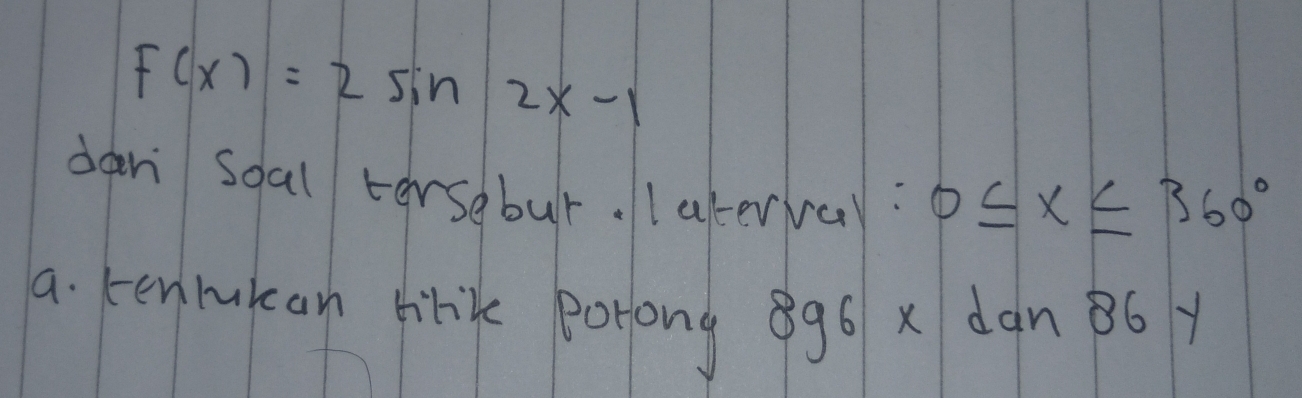 F(x) = 2 sin 2x - 1
dari soal tersebut. Interval : 0 ≤ x ≤ 360°
a. tentukan titik potong sb x dan sb y